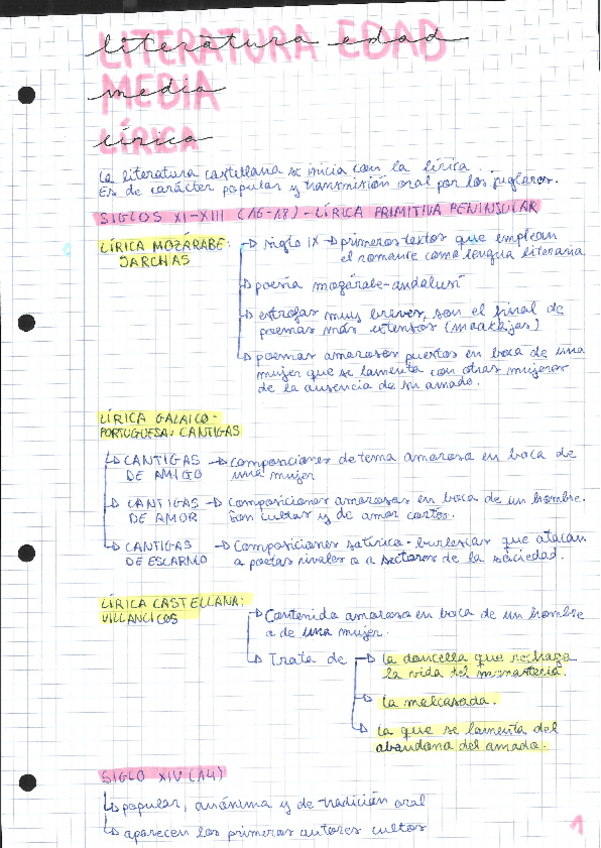 LITERATURA EDAD
literatura edad
MEDIA
media
LÍRICA
lírica
La literatura castellana se inicia con la lírica.
Es de carácter popular y transmisión oral por los juglares.
SIGLOS XI-XIII (16-18) - LÍRICA PRIMITIVA PENINSULAR
LÍRICA MOZÁRABE:
JARCHAS
siglo IX → primeros textos que emplean
el romance como lengua literaria
poesía mozárabe-andalusí
estrofas muy breves, son el final de
poemas más extensos (moaxajas)
poemas amorosos puestos en boca de una
mujer que se lamenta con otras mujeres
de la ausencia de su amado.
LÍRICA GALAICO-
PORTUGUESA: CANTIGAS
CANTIGAS DE AMIGO → composiciones de tema amoroso en boca de
una mujer
CANTIGAS DE AMOR → composiciones amorosas en boca de un hombre.
Son cultas y de amor cortés.
CANTIGAS DE ESCARNIO → Composiciones satírico-burlescas que atacan
a poetas rivales o a sectores de la sociedad.
LÍRICA CASTELLANA:
VILLANCICOS
Contenido amoroso en boca de un hombre
o de una mujer.
Trata de → la doncella que rechaza
la vida del monasterio.
La malcasada.
La que se lamenta del
abandono del amado.
SIGLO XIV (14)
popular, anónima y de tradición oral
aparecen los primeros autores cultos
1